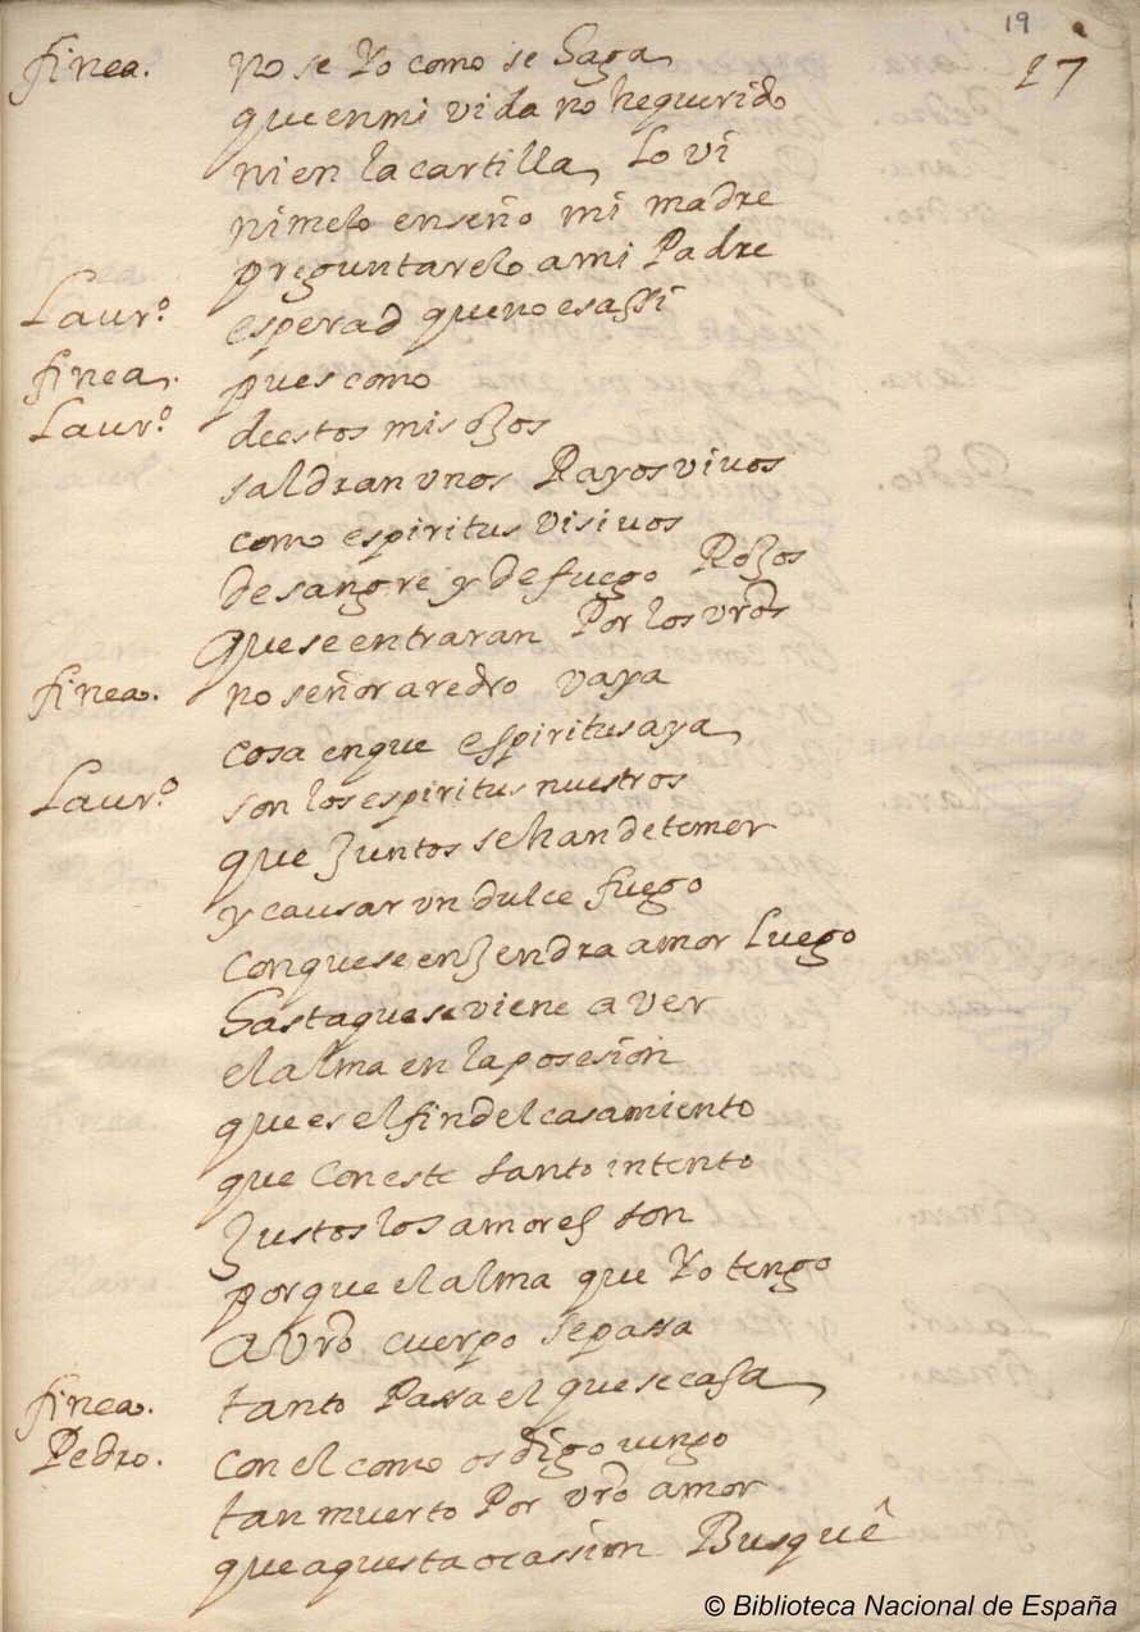 19
17
finea. no se Yo como se haga
que en mi vida no he querido
ni en la cartilla lo vi
ni melo enseño mi madre
preguntarelo a mi Padre
Laur.º esperad que no es assi
finea. pues como
Laur.º de estos mis ojos
saldran vnos Rayos viuos
como espiritus visiuos
de sangre y de fuego Rojos
que se entraran Por los vros
finea. no señor aredro vaya
cosa en que espiritus aya
Laur.º son los espiritus nuestros
que juntos se han de temer
y causar vn dulce fuego
con que se enjendra amor luego
hasta que se viene a ver
el alma en la posesion
que es el fin del casamiento
que con este santo intento
justos los amores son
porque el alma que Yo tengo
a vro cuerpo se passa
finea. tanto Passa el que se casa
Pedro. con el como os digo vengo
tan muerto Por vro amor
que aquesta ocassion Busquê
© Biblioteca Nacional de España